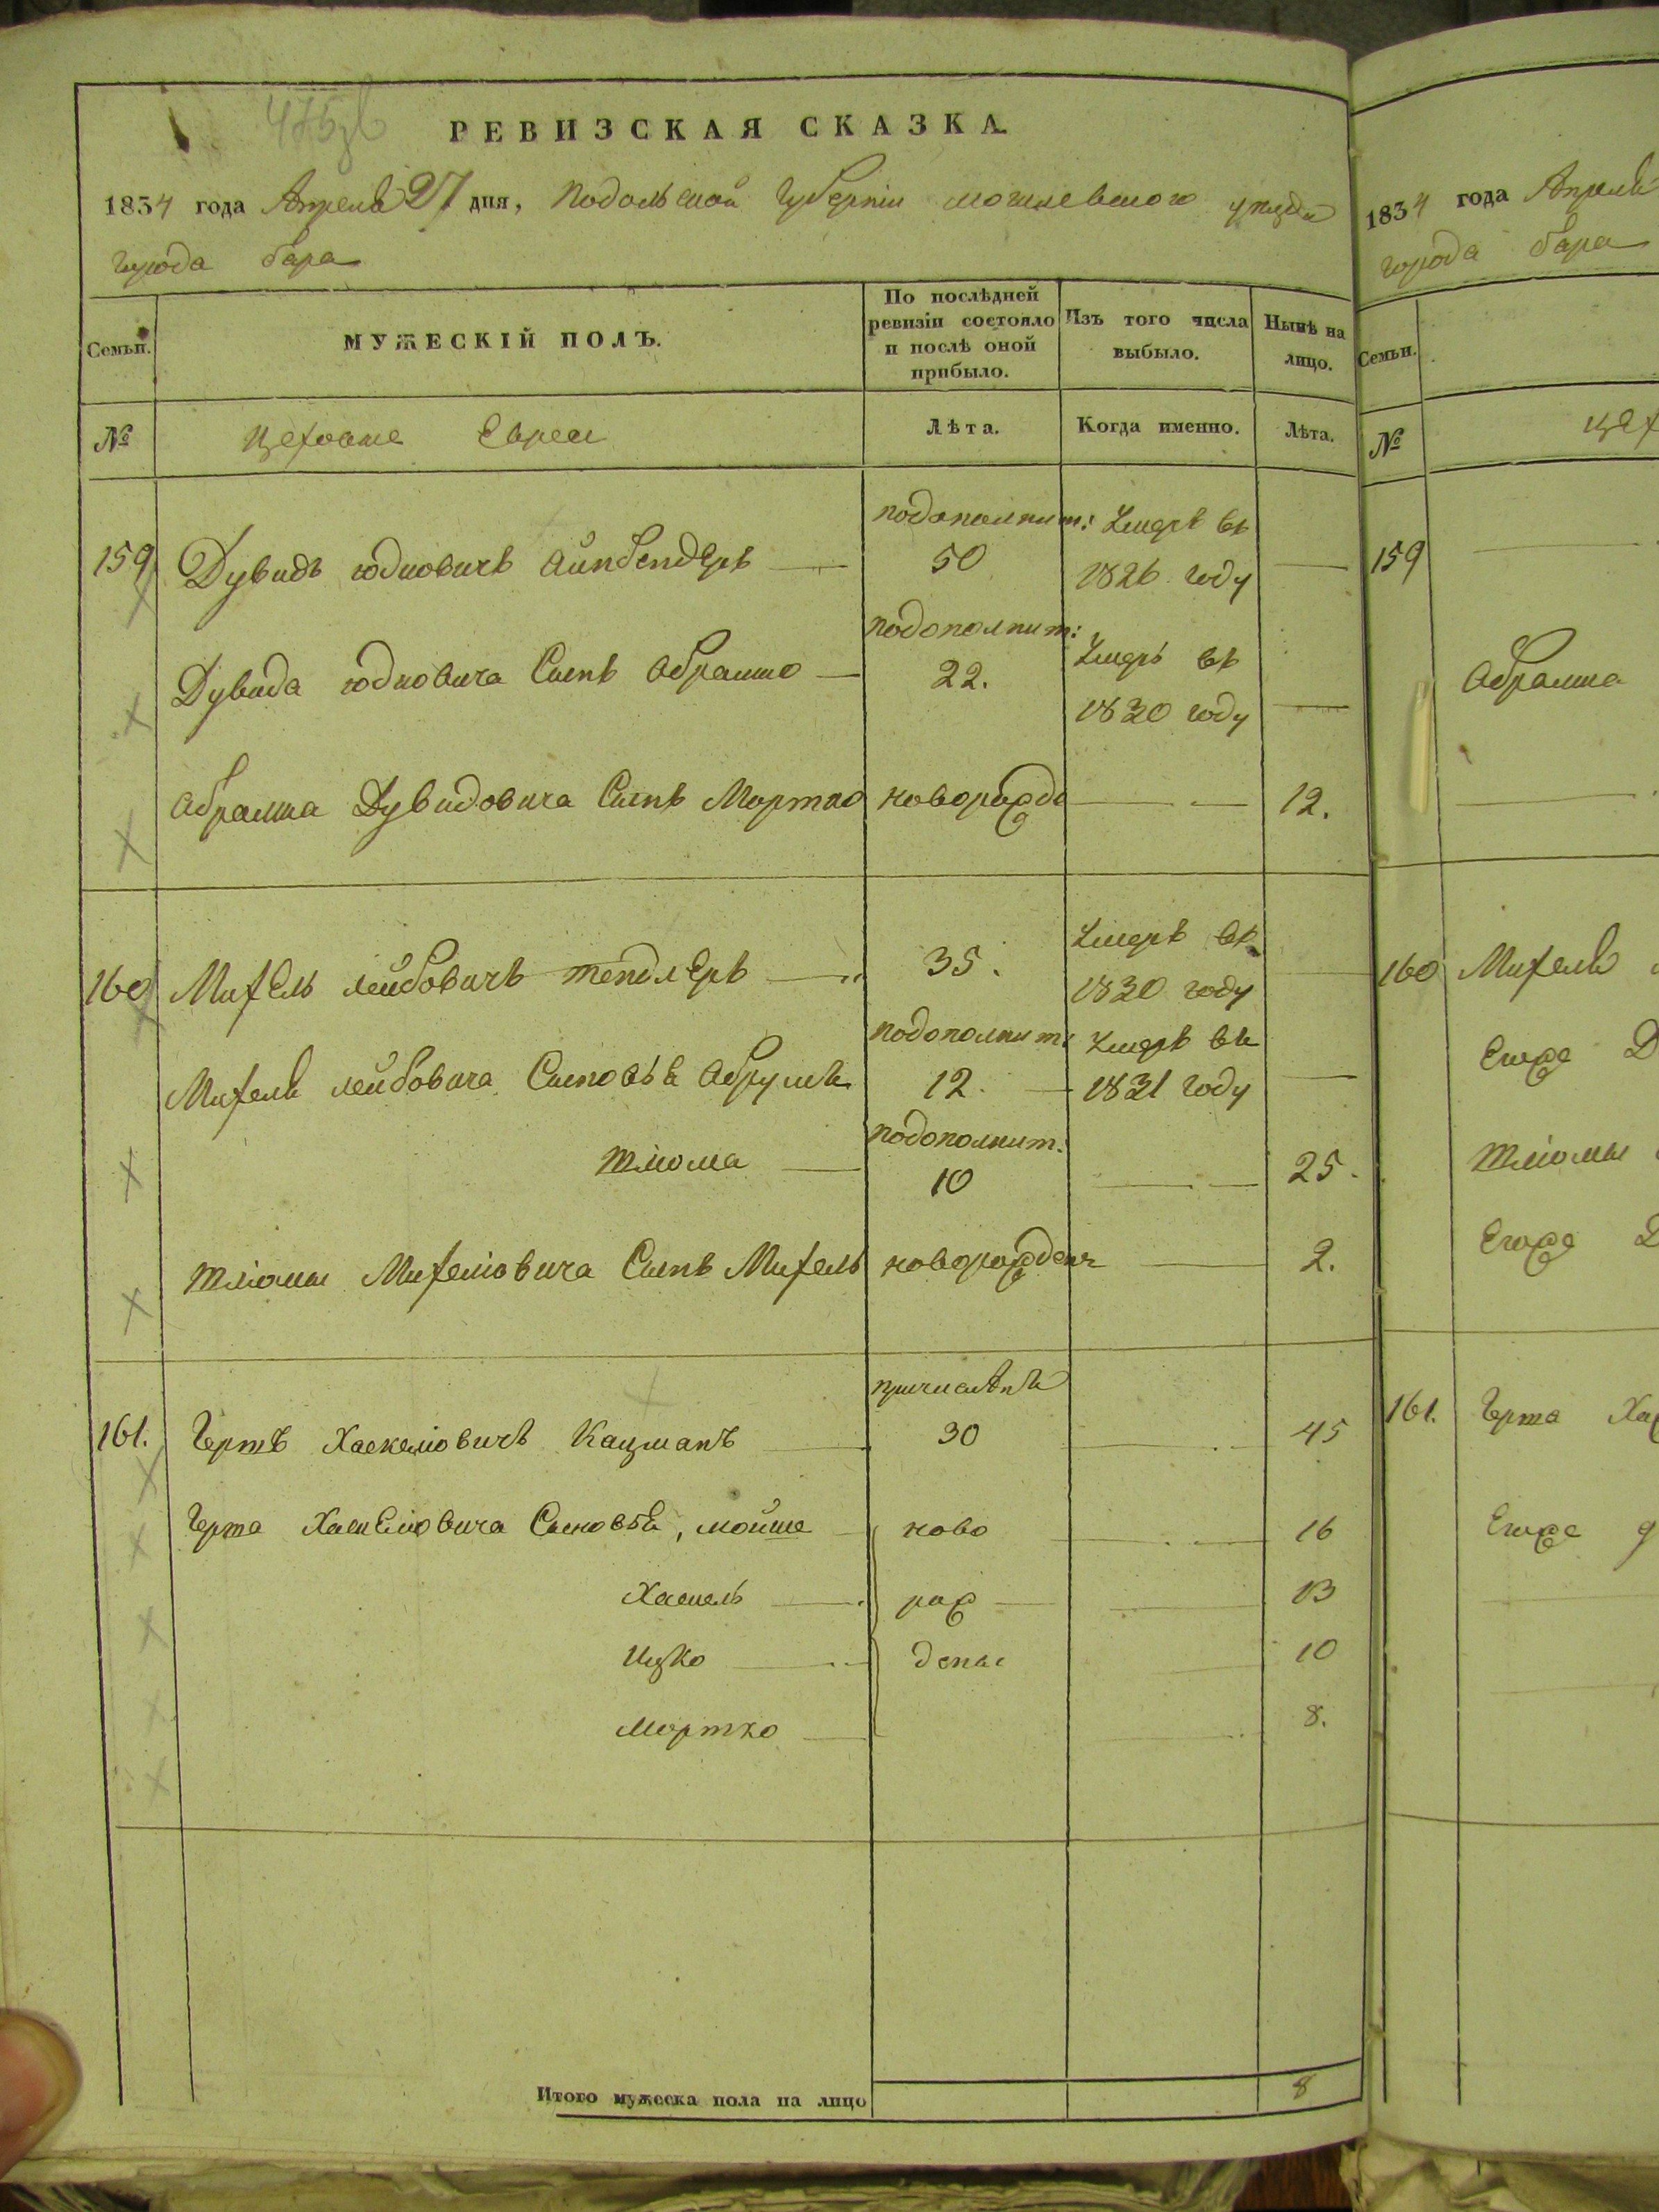 475
РЕВИЗСКАЯ СКАЗКА.
1834 года Апреля 27 дня, Подольской Губерніи Могилевского уезда
города бара
Семьи.
МУЖЕСКІЙ ПОЛЪ.
По послѣдней ревизіи состояло и послѣ оной прибыло.
Изъ того числа выбыло.
Нынѣ на лицо.
№
Цеховые Евреи
Лѣта.
Когда именно.
Лѣта.
подополнит: Умеръ въ
159 Дувидъ юдковичъ Айнбендеръ — 50 1826 году —
подополнит: Умеръ въ
Дувида юдковича Сынъ Абрамко — 22. 1830 году —
Абрамка Дувидовича Сынъ Мортко новорожде — 12.
Умеръ въ
160 Михель лейбовичъ тендлеръ — 35. 1830 году
подополнит: Умеръ въ
Михеля лейбовича Сыновья Абрумъ 12. — 1831 году —
подополнит:
Шліома — 10 — 25.
Шліомы Михеліовича Сынъ Михель новорожден — 2.
причисленъ
161. Гершъ Хаскеліовичъ Кацманъ — 30 — 45
Герша Хаскеліовича Сыновья, мойше — ново — 16
Хаскель — рож — 13
Ицко — дены — 10
Мортко — 8.
Итого мужеска пола на лицо 8
1834 года Апреля
города бара
Семьи.
№
цех
159
Абрамка
160 Михеля
Егоже Д
Шліомы
Егоже Д
161. Герша Хас
Егоже